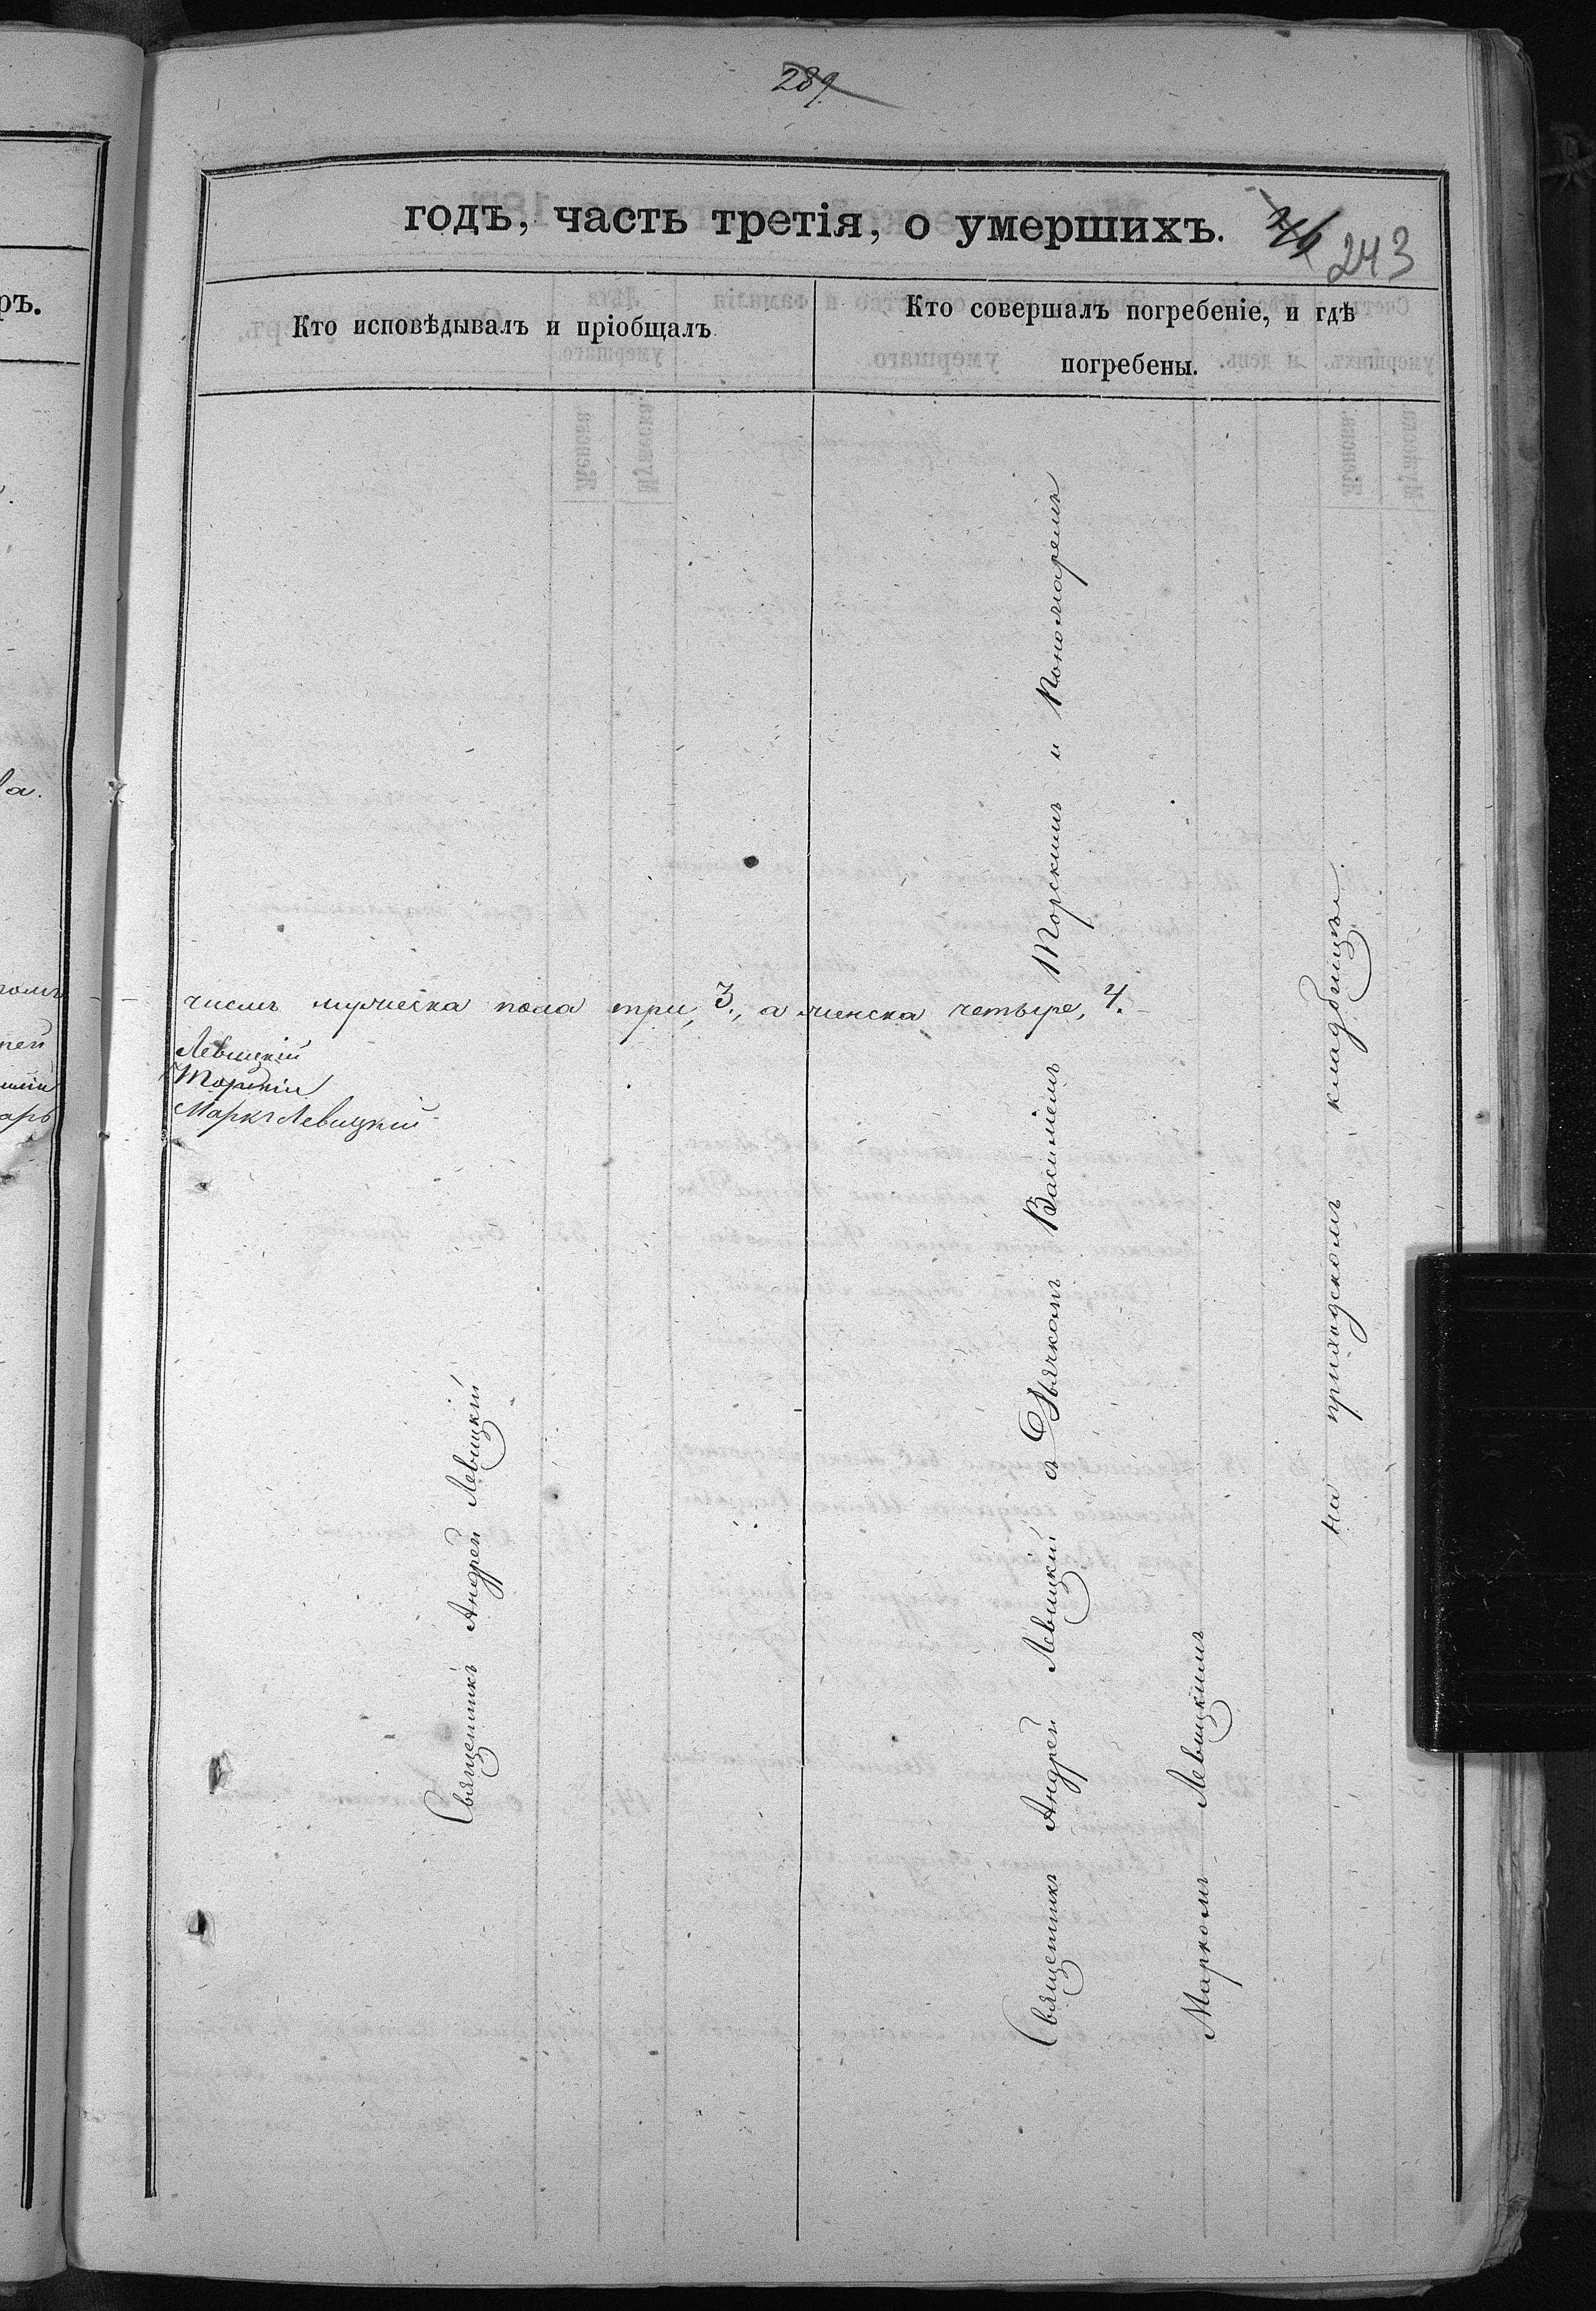 289
годъ, часть третія, о умершихъ.
243
Кто исповѣдывалъ и пріобщалъ
Кто совершалъ погребеніе, и гдѣ
погребены.
числѣ мужеска пола три, 3., а женска четыре, 4.
Левицкій
Торскій
Маркъ Левицкий
Священникъ Андрей Левицкий
Священникъ Андрей Левицкий съ Дьячкомъ Василіемъ Торскимъ и Пономаремъ
Маркомъ Левицкимъ
на приходскомъ кладбищѣ.
ръ.